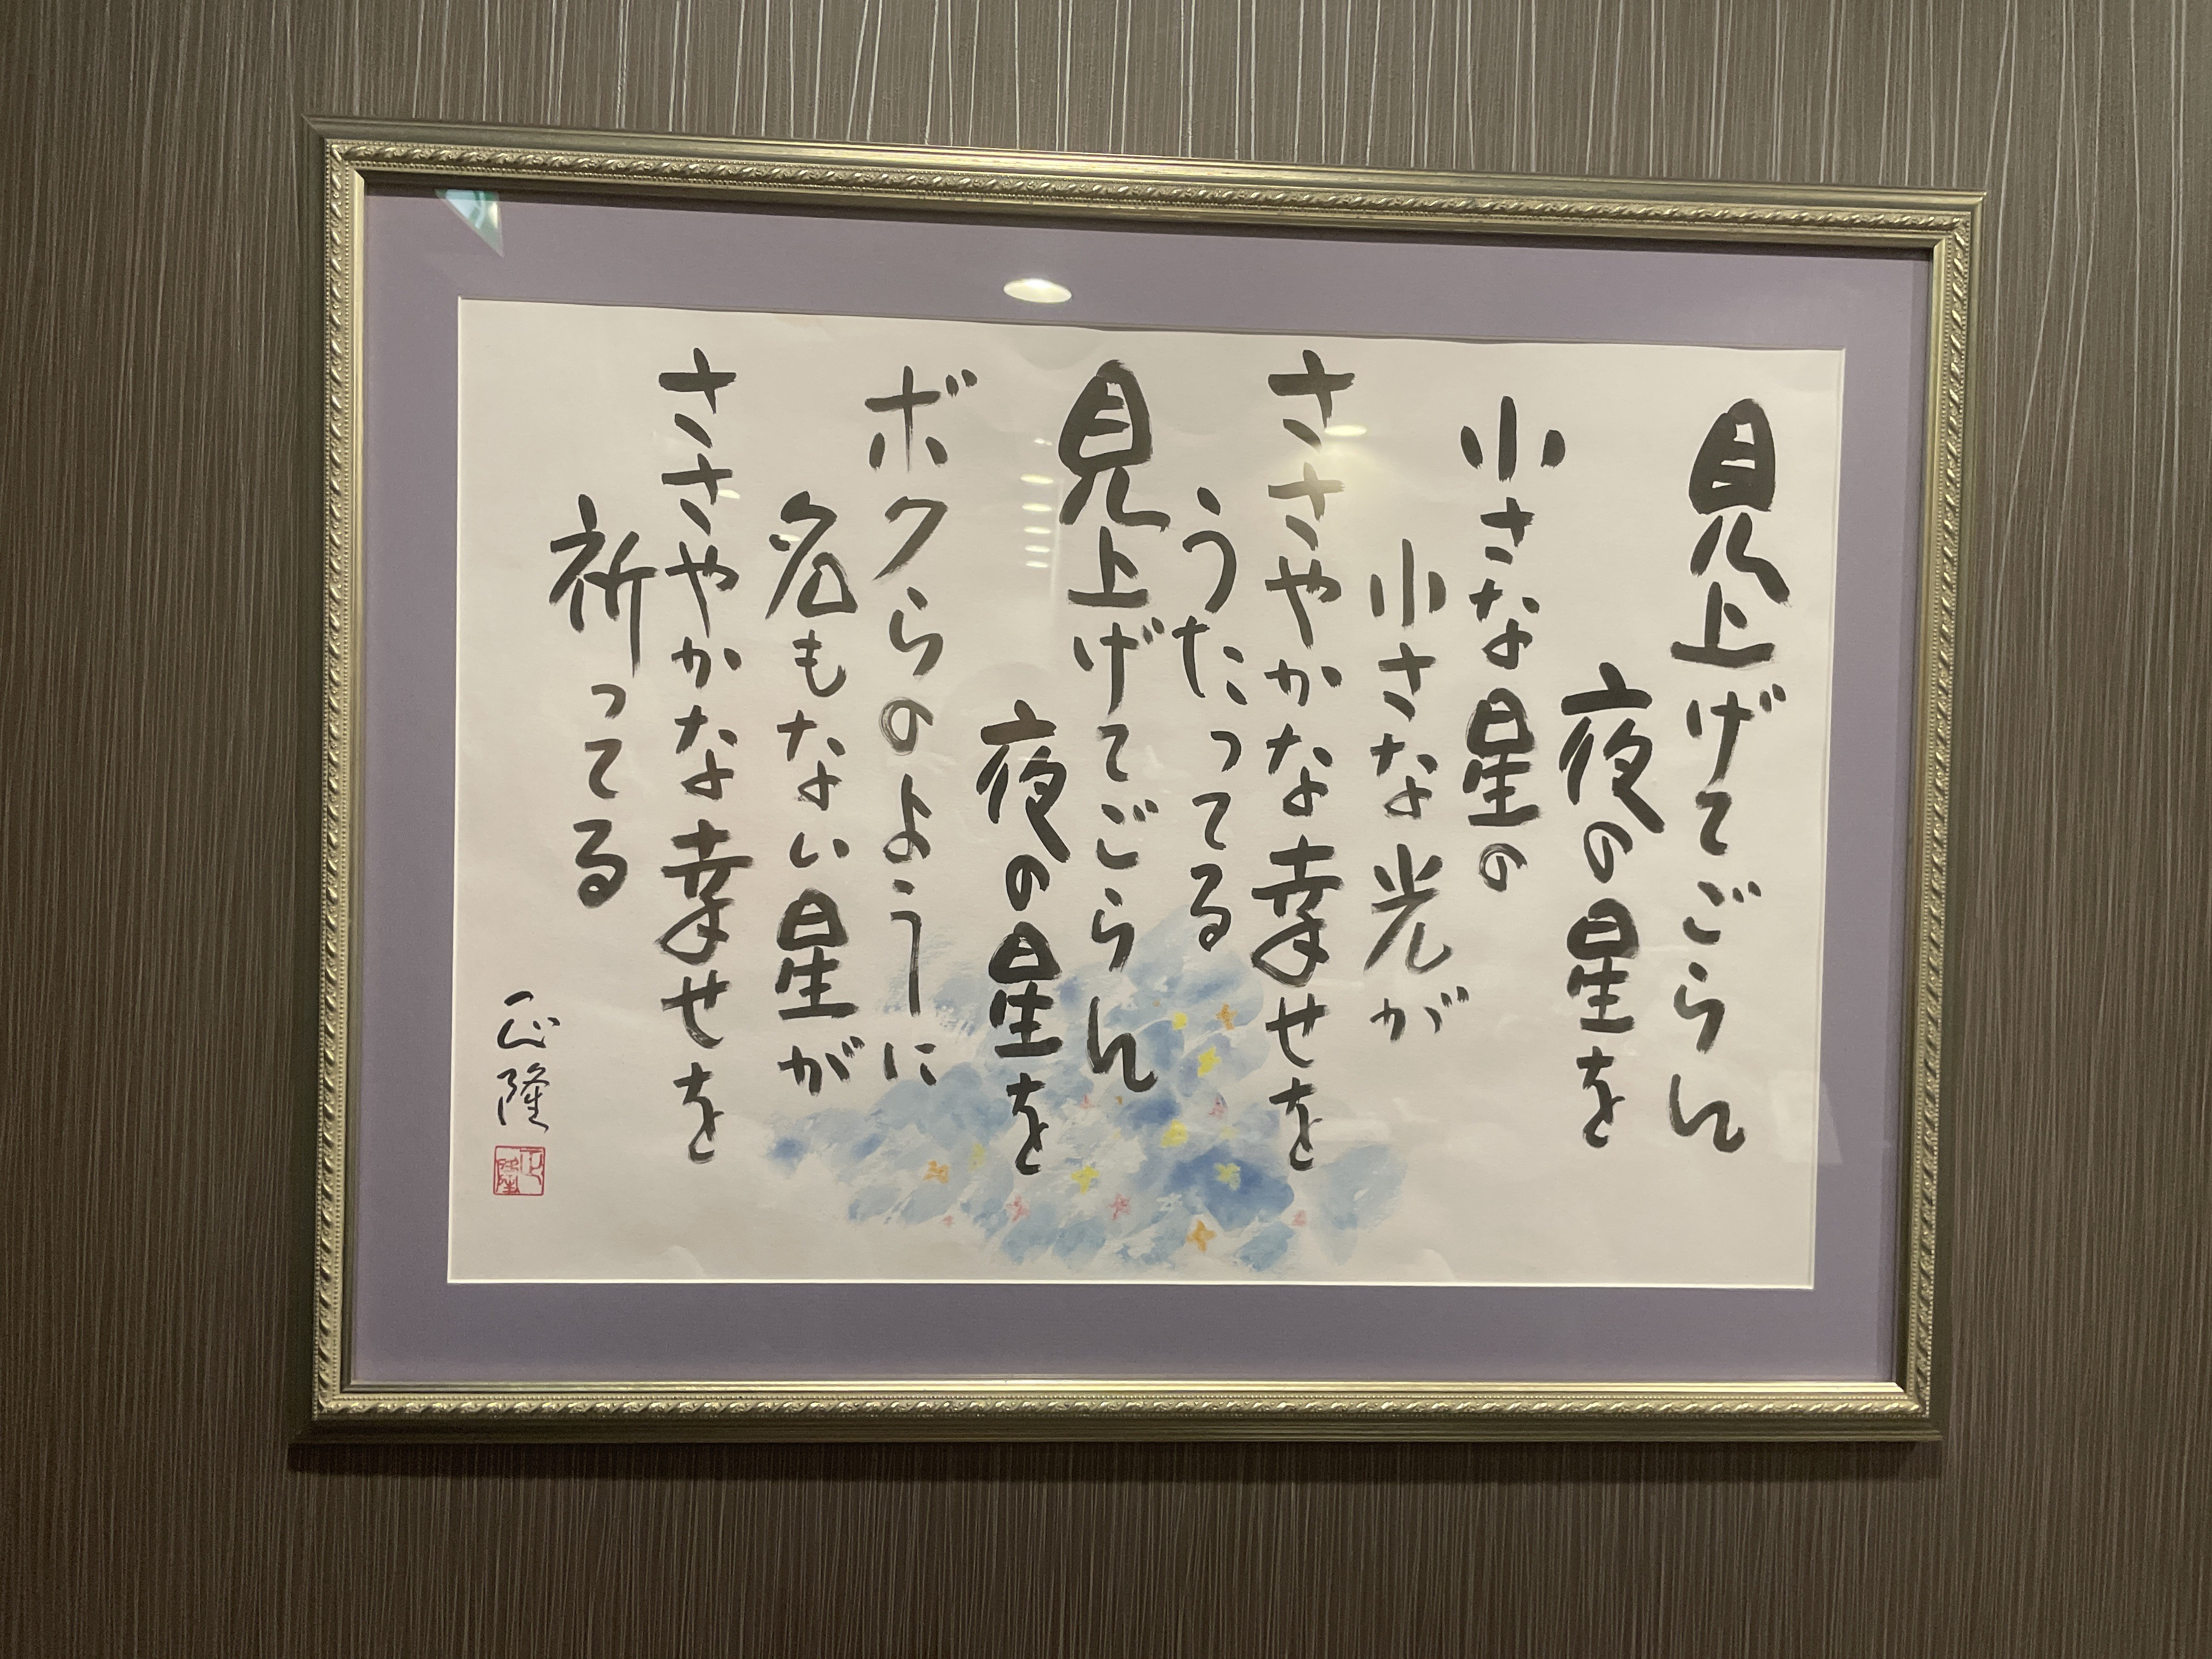 見上げてごらん
夜の星を
小さな星の
小さな光が
ささやかな幸せを
うたってる
見上げてごらん
夜の星を
ボクらのように
名もない星が
ささやかな幸せを
祈ってる
正隆
正隆